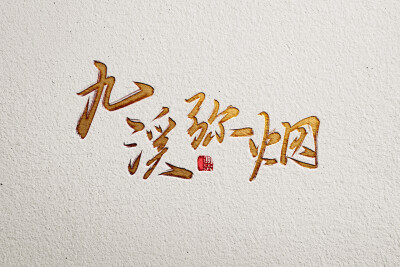 九溪弥烟